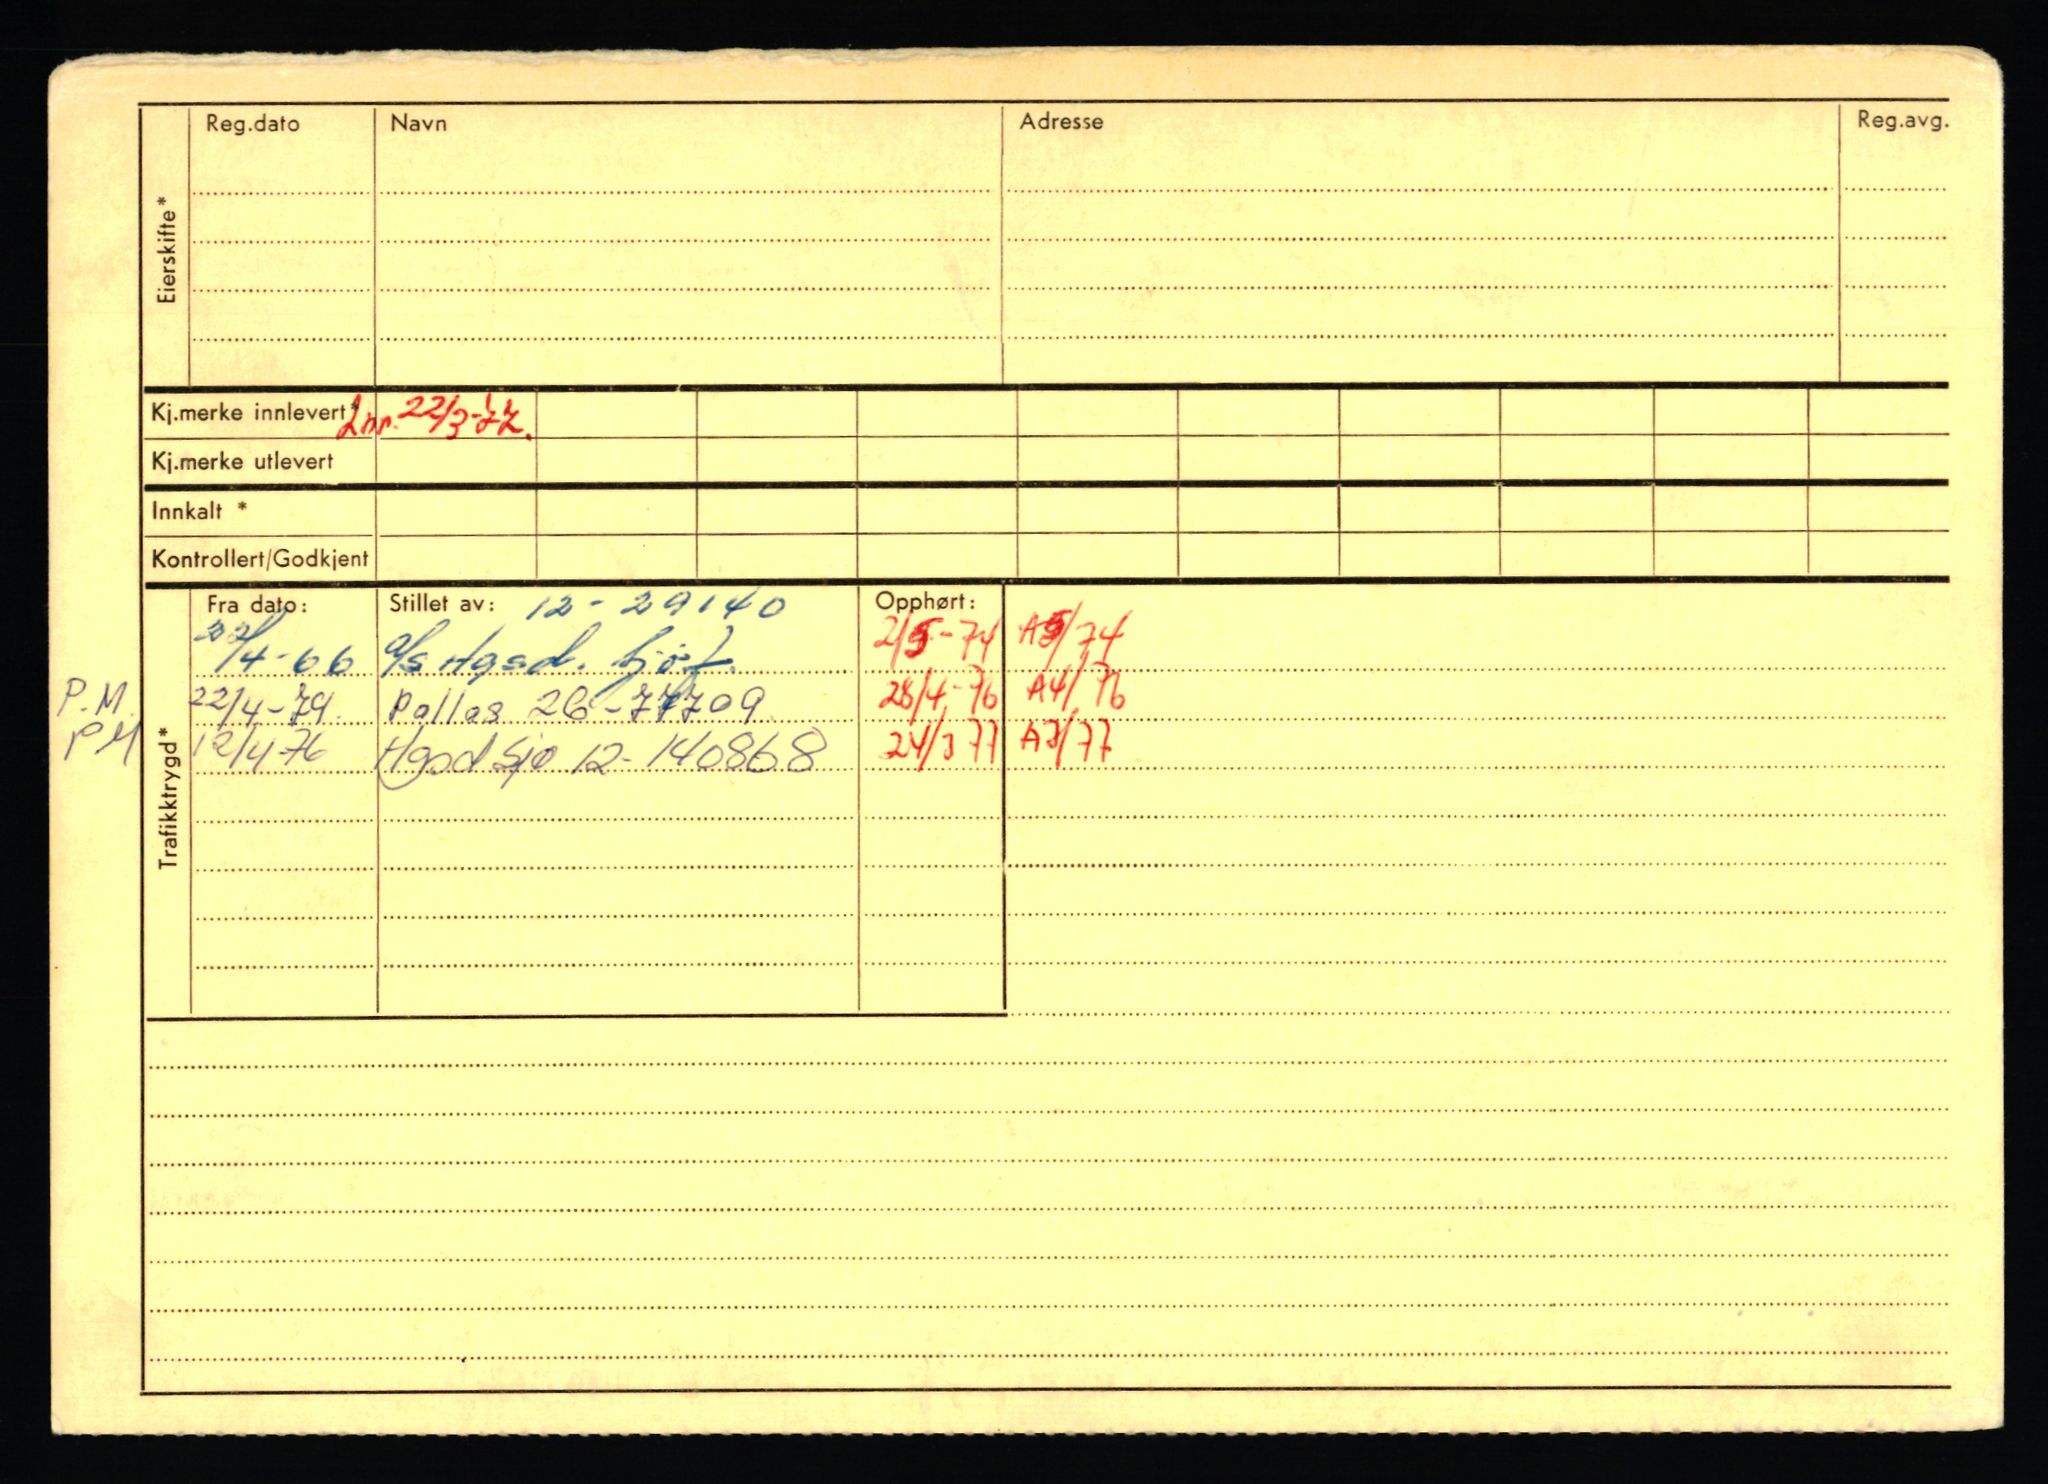 Reg.dato Navn Adresse Reg.avg.
Eierskifte*
Kj.merke innlevert* 22/3-77.
Kj.merke utlevert
Innkalt *
Kontrollert/Godkjent
Trafikktrygd*
Fra dato: Stillet av: 12-29140 Opphørt:
22/4-66 A/s Hgsd. Sjøf. 2/5-74 A5/74
P.M. 22/4-74 Pallas 26-77709 28/4-76 A4/76
PM 12/4-76 Hgsd Sjø 12-140868 24/3 77 A3/77